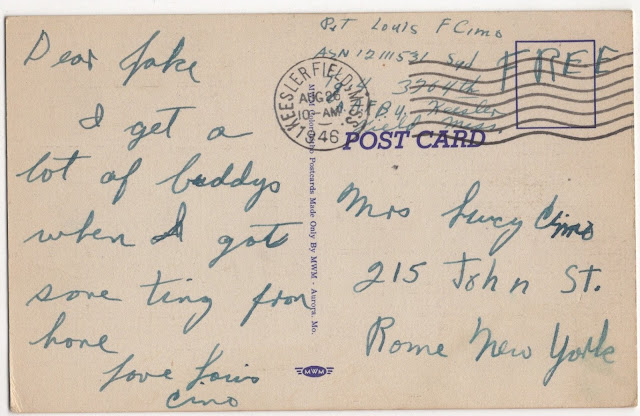 Pvt Louis F Cimo
ASN 12111531 Sqd
3704th
AAF B.U. Keesler
Field Miss
FREE
KEESLER FIELD, MISS.
AUG 26
10 - AM
1946
POST CARD
Dear Jake
I get a
lot of buddys
when I got
some ting from
home
Love Louis
Cimo
Mrs Lucy Cimo
215 John St.
Rome New York
Postcards Made Only By MWM - Aurora, Mo.
MWM